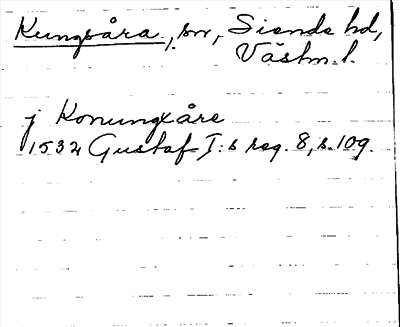 Kungsåra, sn, Siende hd,
Västm. l.
j Konungxåre
1532 Gustaf I:s reg. 8, s. 109.